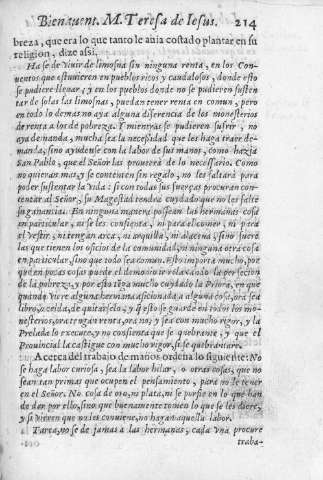 Bienauent. M. Teresa de Iesus. 214
breza, que era lo que tanto le auia costado plantar en su
religion, dize assi.
Ha se de viuir de limosna sin ninguna renta, en los Con
uentos que estuuieren en pueblos ricos y caudalosos, donde esto
se pudiere lleuar, y en los pueblos donde no se pudieren susten
tar de solas las limosnas, puedan tener renta en comun, pero
en todo lo demas no aya alguna diferencia de los monesterios
de renta a los de pobreza. Y mientras se pudieren sufrir, no
aya demanda, mucha sea la necesidad que les haga traer de-
manda, sino ayudense con la labor de sus manos, como hazia
San Pablo, que el Señor las proueerá de lo necessario. Como
no quieran mas, y se contenten sin regalo, no les faltará para
poder sustentar la vida: si con todas sus fuerças procuran con-
tentar al Señor, su Magestad tendrá cuydado que no les falte
su ganancia. En ninguna manera possean las hermanas cosa
en particular, ni se les consienta, ni para el comer, ni para
el vestir, ni tengan arca, ni arquilla, ni alacena, sino fuere
las que tienen los oficios de la comunidad, ni ninguna otra cosa
en particular, sino que todo sea comun. Esto importa mucho, por
que en pocas cosas puede el demonio ir relaxando la perfecion
de la pobreza, y por esto tega mucho cuydado la Priora, en que
quando viere alguna hermana aficionada a alguna cosa, ora sea
libro, o celda, de quitarselo, y q̃ esto se guarde en todos los mo-
nesterios, ora tengan renta, ora no; y sea con mucho rigor, y la
Prelada lo execute, y no consienta que se quebrante, y que el
Prouincial la castigue con mucho rigor, si se quebrantare.
Acerca del trabajo de manos ordena lo siguiente: No
se haga labor curiosa, sea la labor hilar, o otras cosas, que no
sean tan primas que ocupen el pensamiento, para no le tener
en el Señor. No cosa de oro, ni plata, ni se porfie en lo que han
de dar por ello, sino que buenamente tomen lo que se les diere,
y si vieren que no les conuiene, no hagan aquella labor.
Tarea, no se de jamas a las hermanas, cada vna procure
traba-